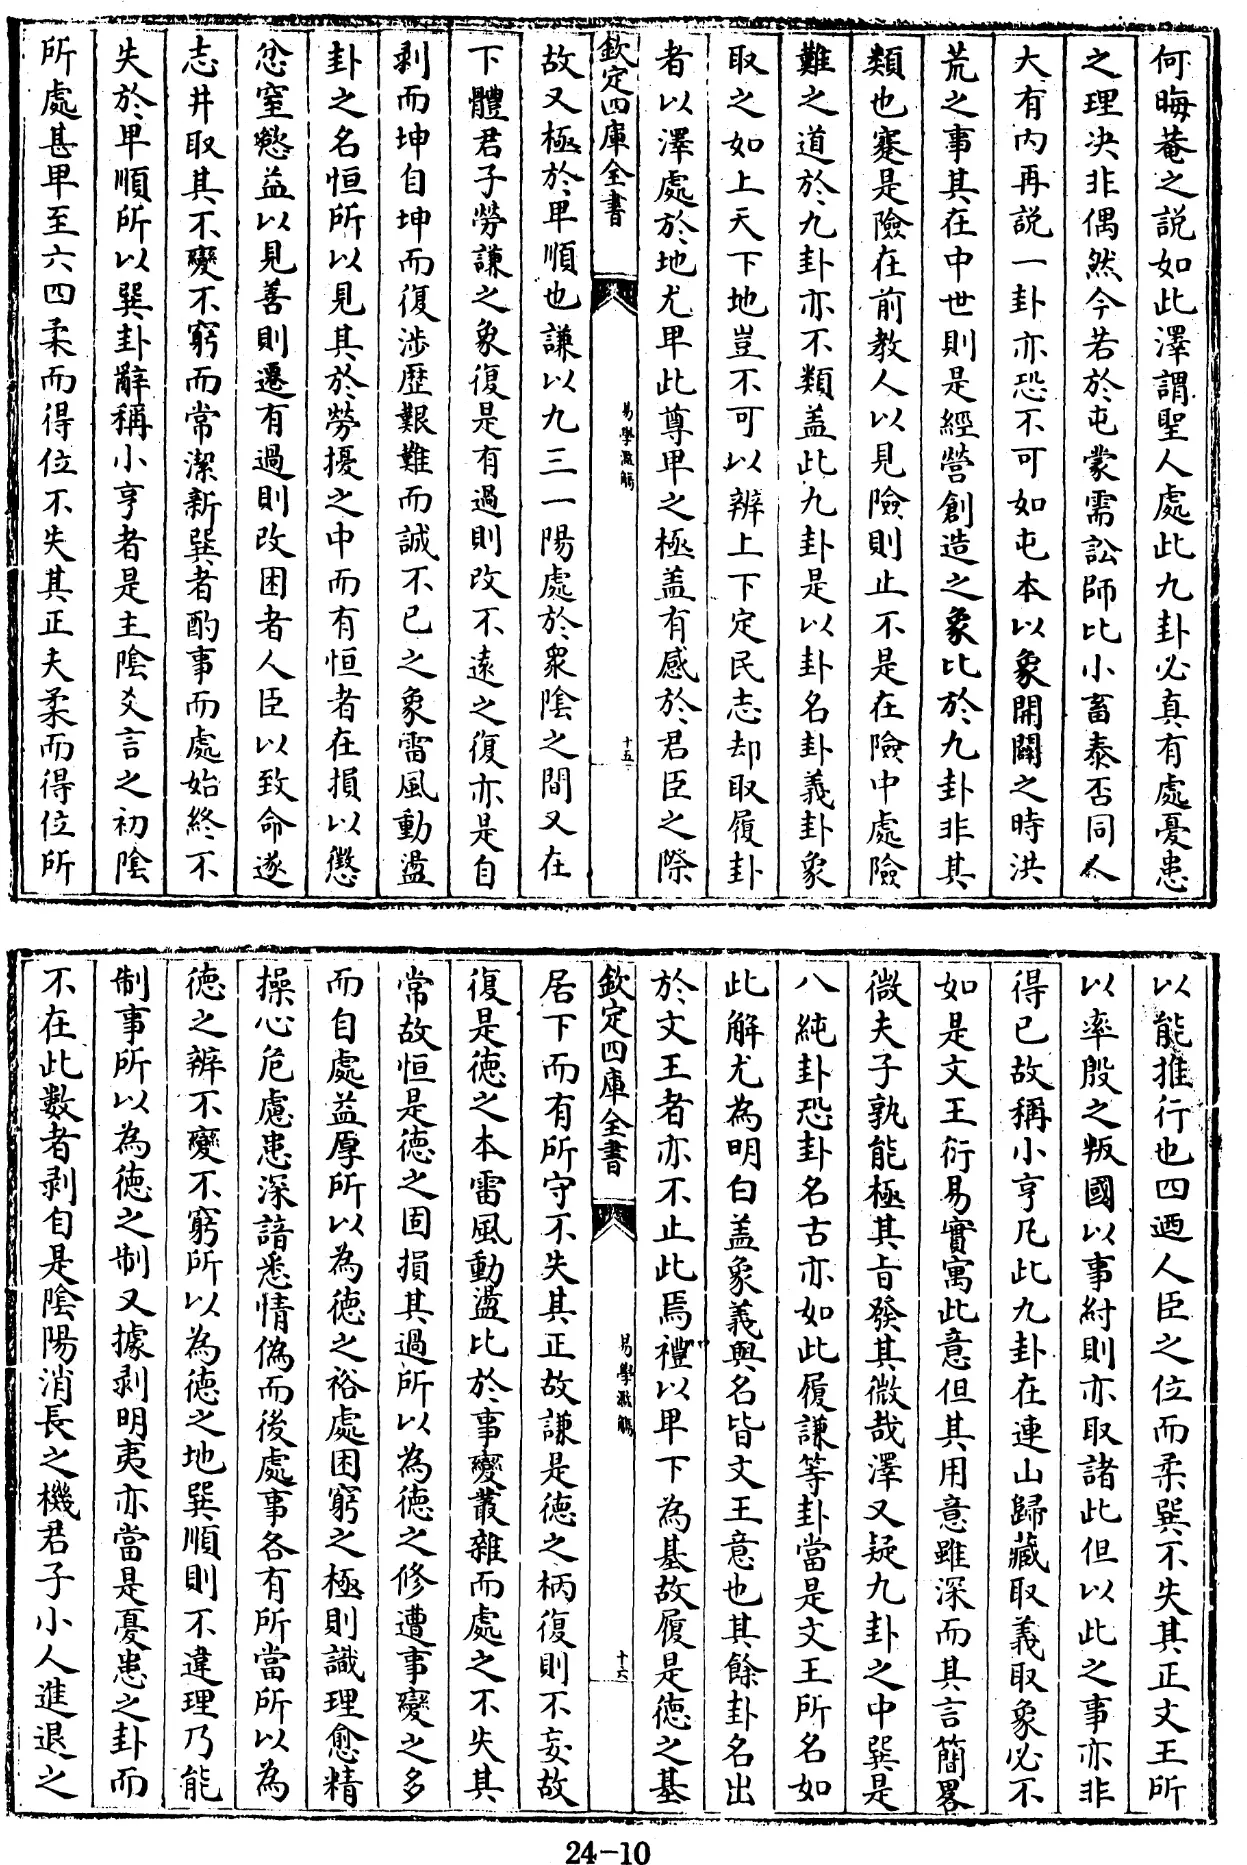 何晦菴之説如此澤謂聖人處此九卦必真有處憂患
之理决非偶然今若於屯蒙需訟師比小畜泰否同人
大有内再説一卦亦恐不可如屯本以象開闢之時洪
荒之事其在中世則是經營創造之象比於九卦非其
類也蹇是險在前教人以見險則止不是在險中處險
難之道於九卦亦不類盖此九卦是以卦名卦義卦象
取之如上天下地豈不可以辨上下定民志却取履卦
者以澤處於地尤卑此尊卑之極盖有感於君臣之際
欽定四庫全書
易學濫觴
十五
故又極於卑順也謙以九三一陽處於衆陰之間又在
下體君子勞謙之象復是有過則改不遠之復亦是自
剥而坤自坤而復涉歴艱難而誠不已之象雷風動盪
卦之名恒所以見其於勞擾之中而有恒者在損以懲
忿窒慾益以見善則遷有過則改困者人臣以致命遂
志井取其不變不窮而常潔新巽者酌事而處始終不
失於卑順所以巽卦辭稱小亨者是主陰爻言之初陰
所處甚卑至六四柔而得位不失其正夫柔而得位所
以能推行也四廼人臣之位而柔巽不失其正文王所
以率殷之叛國以事紂則亦取諸此但以此之事亦非
得已故稱小亨凡此九卦在連山歸藏取義取象必不
如是文王衍易實寓此意但其用意雖深而其言簡畧
微夫子孰能極其旨發其微哉澤又疑九卦之中巽是
八純卦恐卦名古亦如此履謙等卦當是文王所名如
此解尤為明白盖象義與名皆文王意也其餘卦名出
於文王者亦不止此焉禮以卑下為基故履是徳之基
欽定四庫全書
易學濫觴
十六
居下而有所守不失其正故謙是徳之柄復則不妄故
復是徳之本雷風動盪比於事變叢雜而處之不失其
常故恒是徳之固損其過所以為徳之修遭事變之多
而自處益厚所以為徳之裕處困窮之極則識理愈精
操心危慮患深諳悉情偽而後處事各有所當所以為
徳之辨不變不窮所以為徳之地巽順則不違理乃能
制事所以為徳之制又據剥明夷亦當是憂患之卦而
不在此數者剥自是陰陽消長之機君子小人進退之
24-10